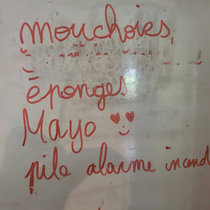 mouchoirs,
éponges
Mayo
pile alarme incend